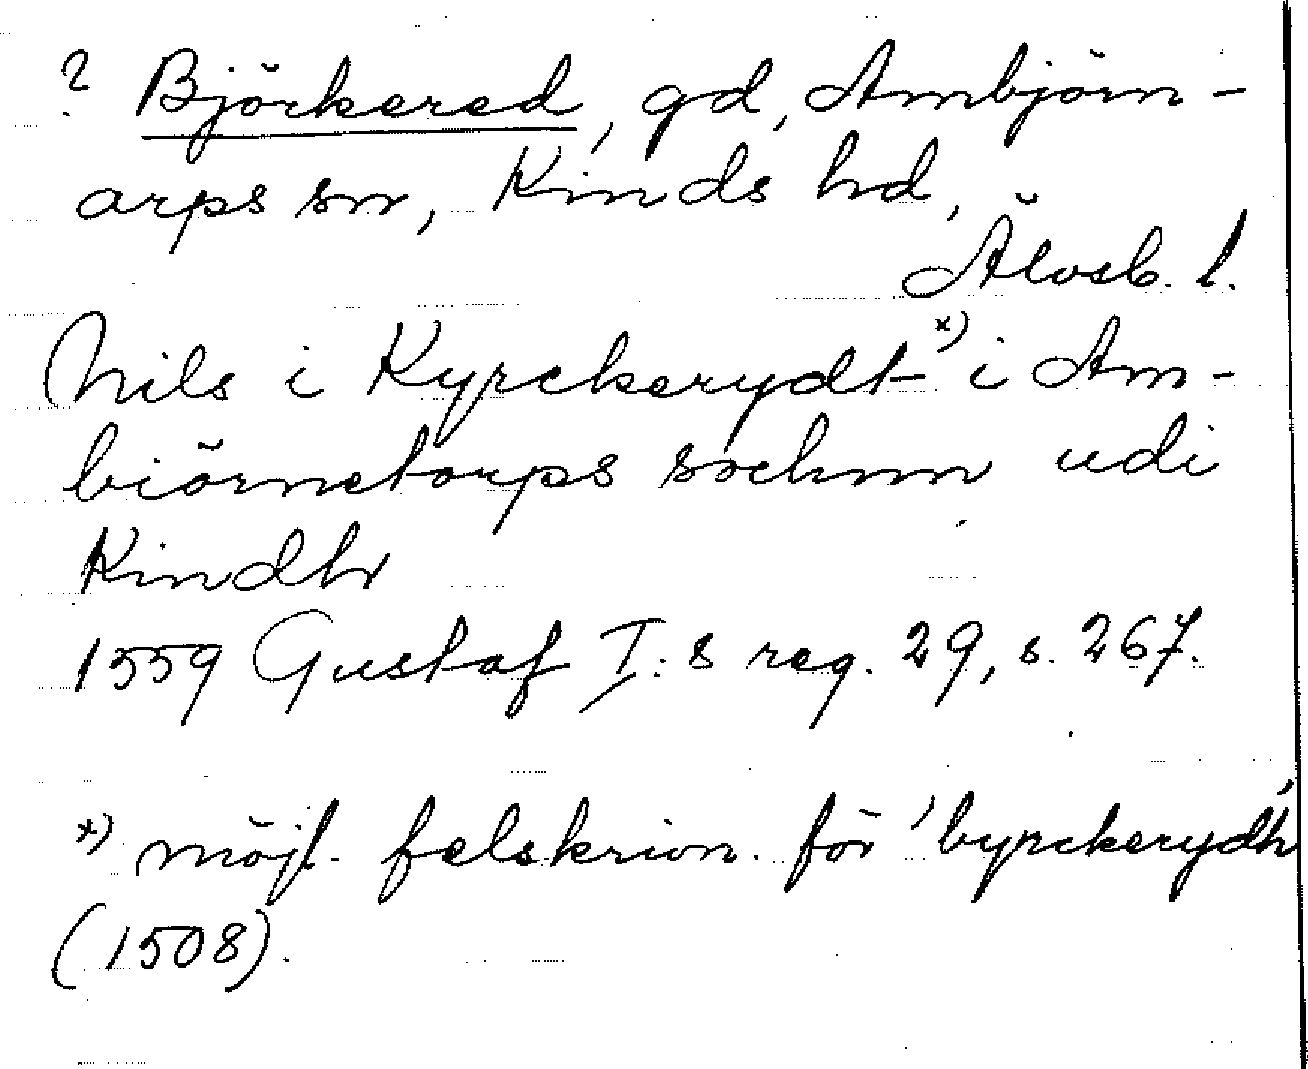 ? Björkered, gd, Ambjörn-
arps sn, Kinds hd,
Älvsb. l.
Nils i Kyrckerydt *) i Am-
biörnetorps sochnn udi
Kindh
1559 Gustaf I:s reg. 29, s. 267.
*) möjl. felskrivn. för 'byrckerydh'
(1508).